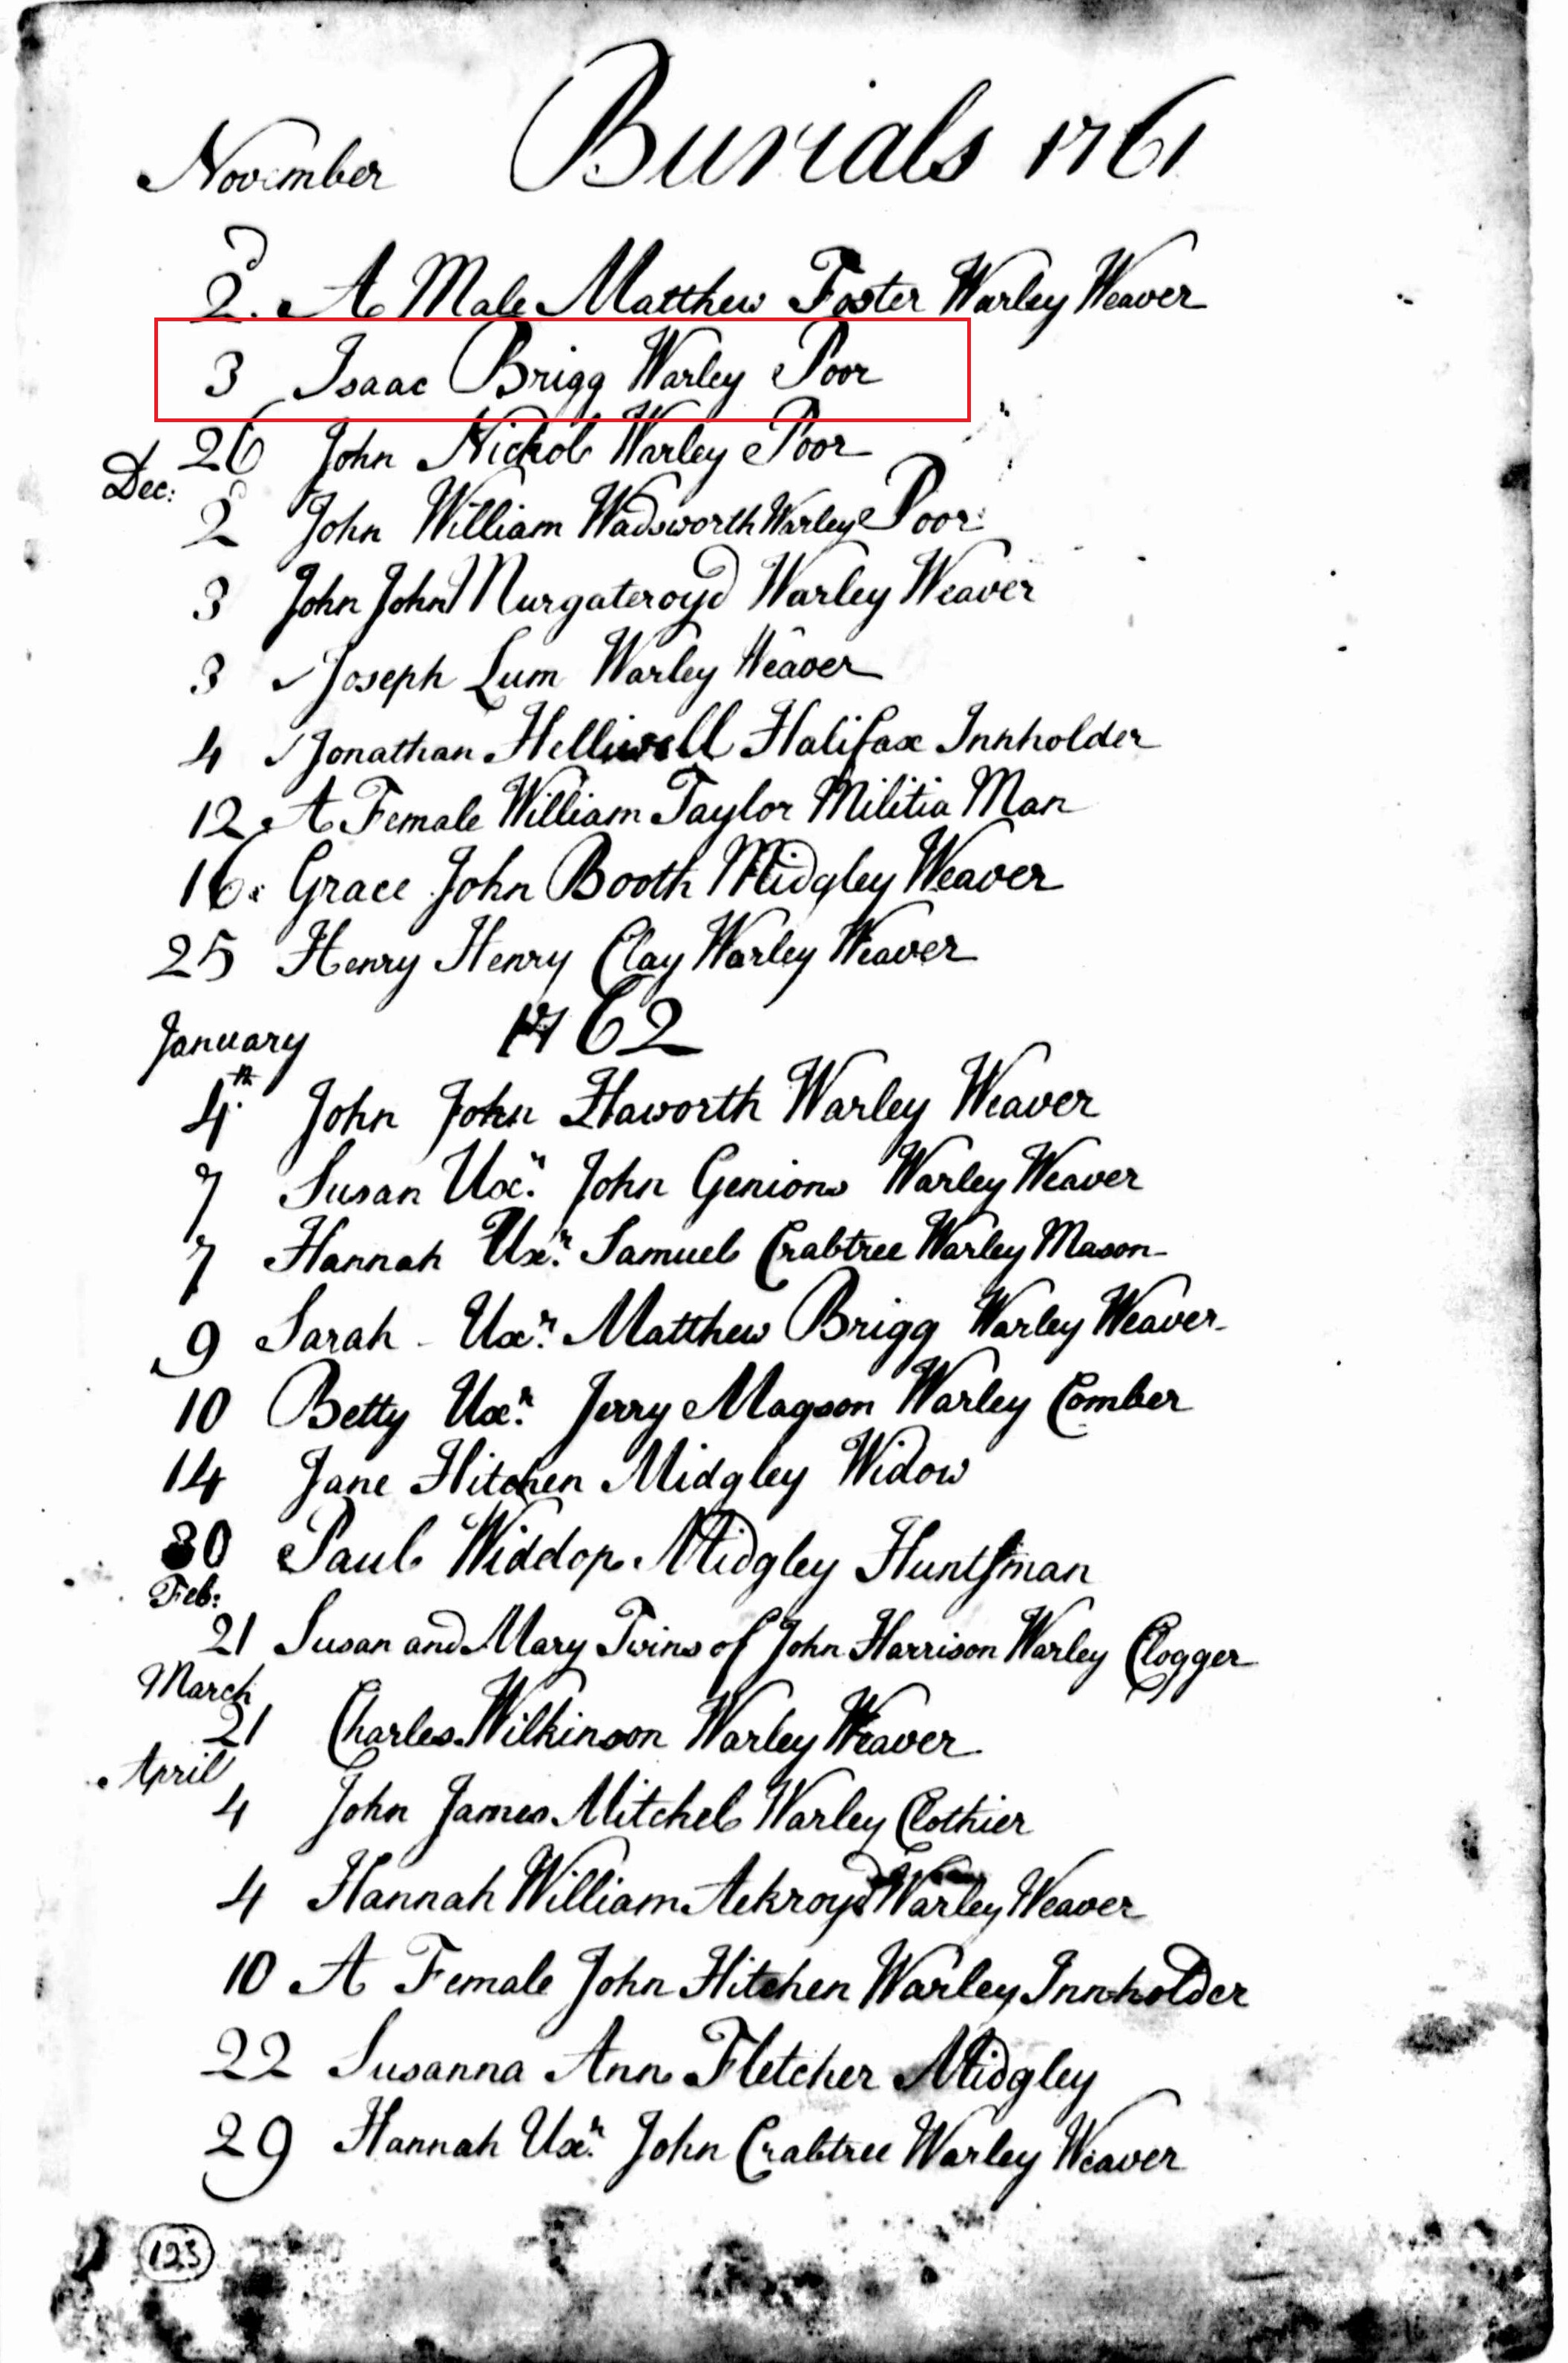 November Burials 1761
2d. A Male Matthew Foster Warley Weaver
3 Isaac Brigg Warley Poor
26 John Nichol Warley Poor
Dec:
2d John William Wadsworth Warley Poor
3 John John Murgateroyd Warley Weaver
3 Joseph Lum Warley Weaver
4 Jonathan Helliwell Halifax Innholder
12 A Female William Taylor Militia Man
16 Grace John Booth Midgley Weaver
25 Henry Henry Clay Warley Weaver
January 1762
4th John John Haworth Warley Weaver
7 Susan Uxr. John Genions Warley Weaver
7 Hannah Uxr. Samuel Crabtree Warley Mason
9 Sarah Uxr. Matthew Brigg Warley Weaver
10 Betty Uxr. Jerry Magson Warley Comber
14 Jane Hitchen Midgley Widow
30 Paul Widdop Midgley Huntsman
Feb:
21 Susan and Mary Twins of John Harrison Warley Clogger
March
21 Charles Wilkinson Warley Weaver
April
4 John James Mitchel Warley Clothier
4 Hannah William Ackroyd Warley Weaver
10 A Female John Hitchen Warley Innholder
22 Susanna Ann Fletcher Midgley
29 Hannah Uxr. John Crabtree Warley Weaver
123